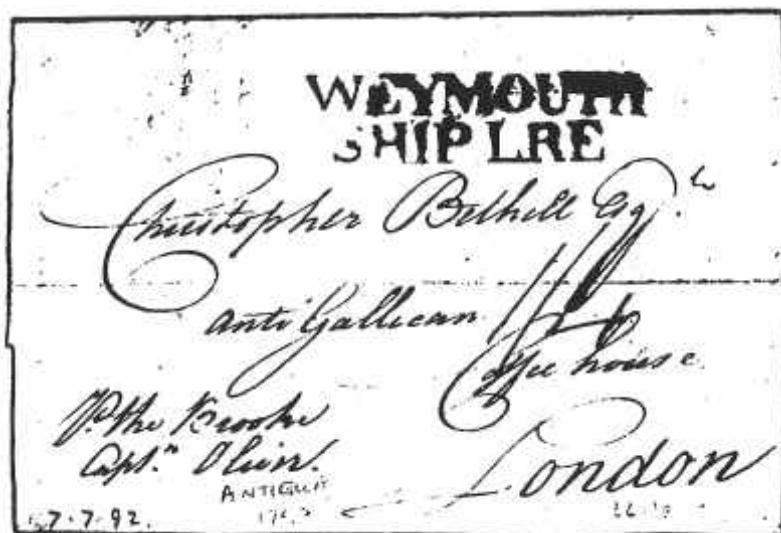 WEYMOUTH
SHIP LRE
Christopher Bethell Esq.r
anti Gallican
Coffee house
London
Pr. the Brooke
Capt.n
ANTIGUA
7.7.92.